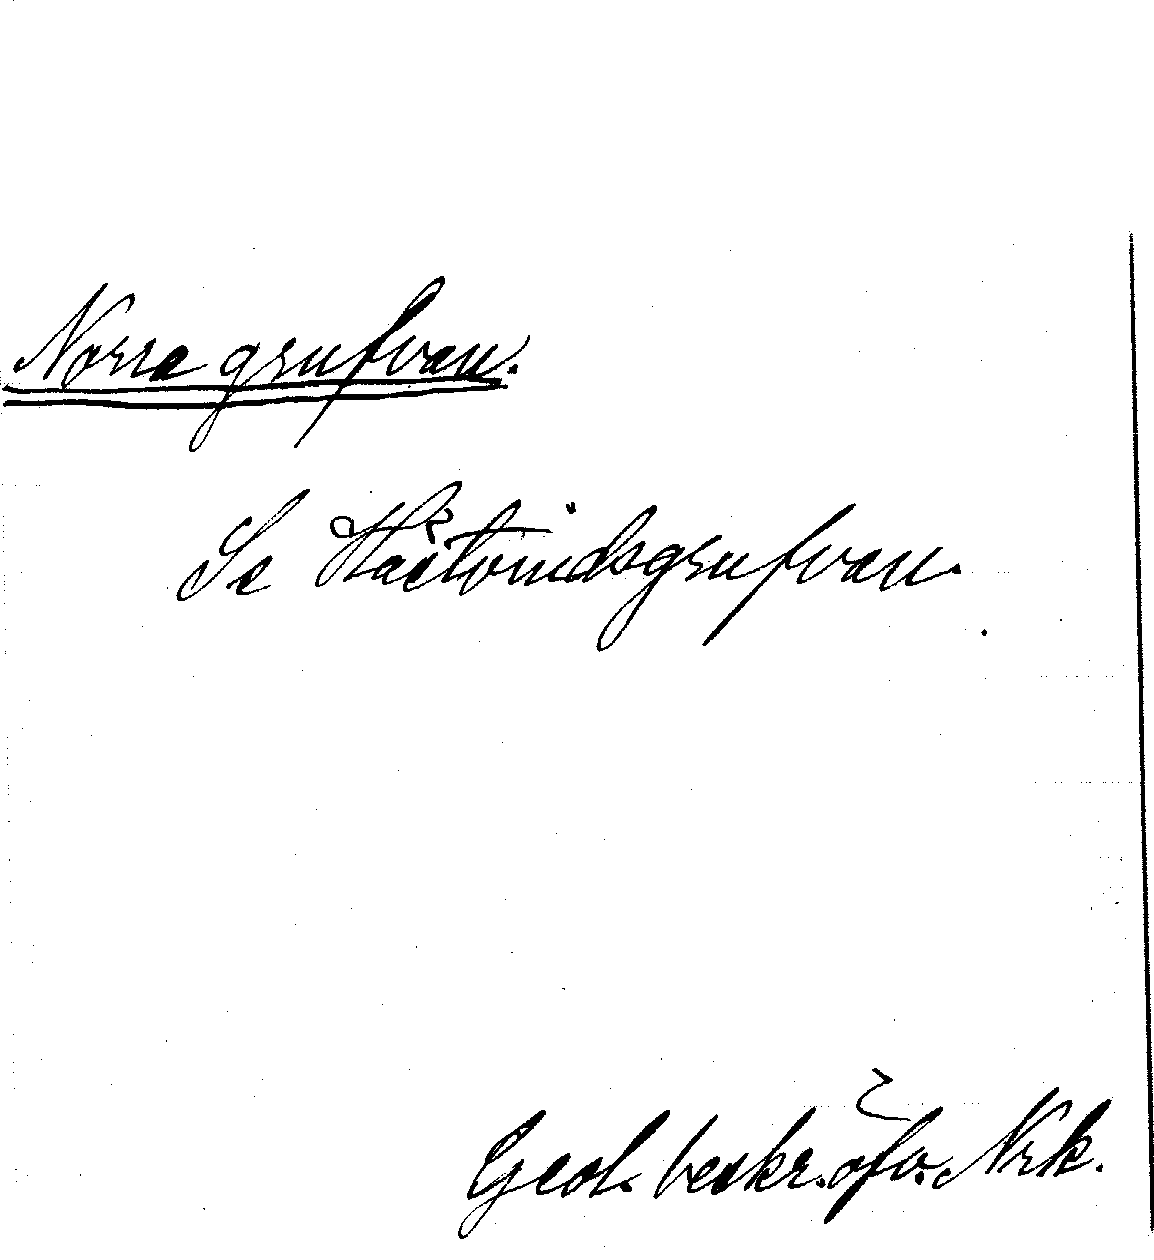 Norra grufvan.
Se Hästvindsgrufvan.
Geol. beskr. öfv. Nrk.